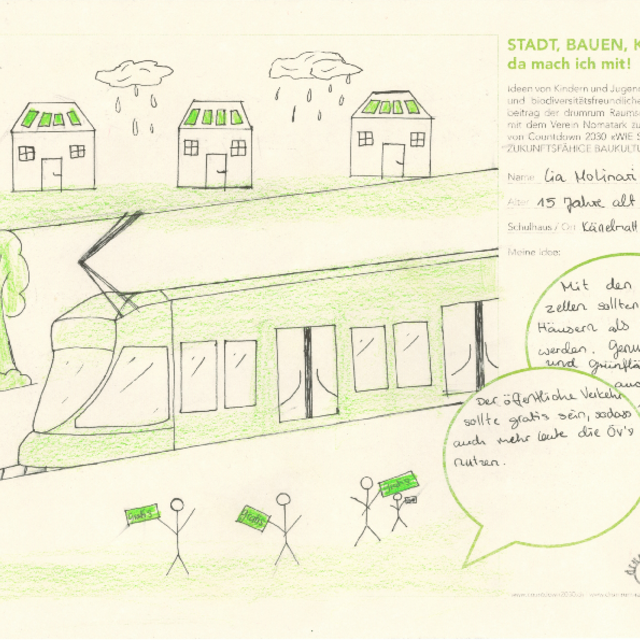 STADT, BAUEN, K
da mach ich mit!
Ideen von Kindern und Jugen
und biodiversitätsfreundliche
beitrag der drumrum Raums
mit dem Verein Nomatark zu
von Countdown 2030 «WIE S
ZUKUNFTSFÄHIGE BAUKULTU
Name Lia Molinari
Alter 15 Jahre alt
Schulhaus / Ort Känelmatt
Meine Idee:
Mit den
zellen sollten
Häusern als
werden. Genu
und Grünflä
auc
Der öffentliche Verkehr
sollte gratis sein, sodass
auch mehr leute die ÖV's
nutzen.
Gratis
Gratis
Gratis